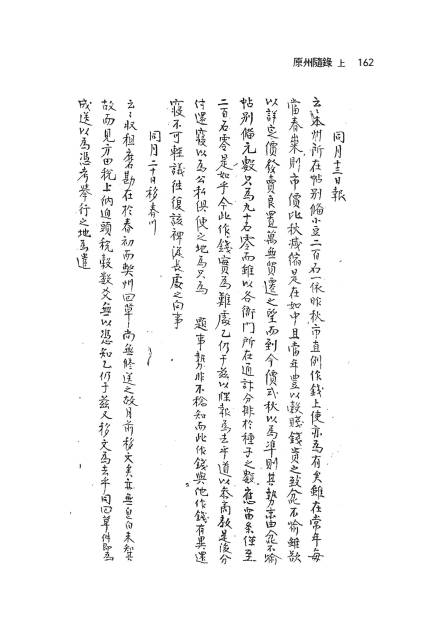 原州隨錄 上 162
同月十三日報
云云本州所在帖別備小豆二百石一依昨秋市直例作錢上使亦爲有矣雖在常年每
當春巢則市價比秋減備是在如中且當年豊以穀賤錢貴之致愈不喻雖欲
以詳定價發賣良置萬無貿遷之望而到今價式秋以爲準則其勢末由愈不喻
帖別備元數只爲九十石零而雖以各衙門所在通計分排於種子之數應留条僅至
二百石零是如乎今此作錢實爲難處乙仍于玆以牒報爲去乎道以參商敎是後分
付還寢以爲公私俱便之地爲只爲 題事勢非不稔知而此作錢與他作錢有異還
寢不可輕議往復該裨從長處之向事
同月二十日移春川
云云收租磨勘在於春初而契州回草尚無修送之故月前移文矣亦無皂白未知其
故而見方田稅上納迫頭稅穀數爻無以憑知乙仍于玆又移文爲去乎同回草件即爲
成送以爲憑考擧行之地爲遣